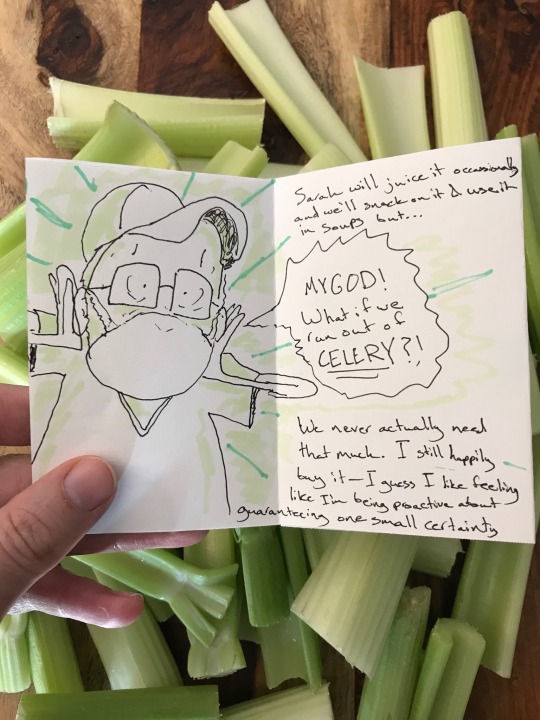 Sarah will juice it occasionally
and we'll snack on it & use it
in soups but...
MY GOD!
What if we
run out of
CELERY?!
We never actually need
that much. I still happily
buy it — I guess I like feeling
like I'm being proactive about
guaranteeing one small certainty